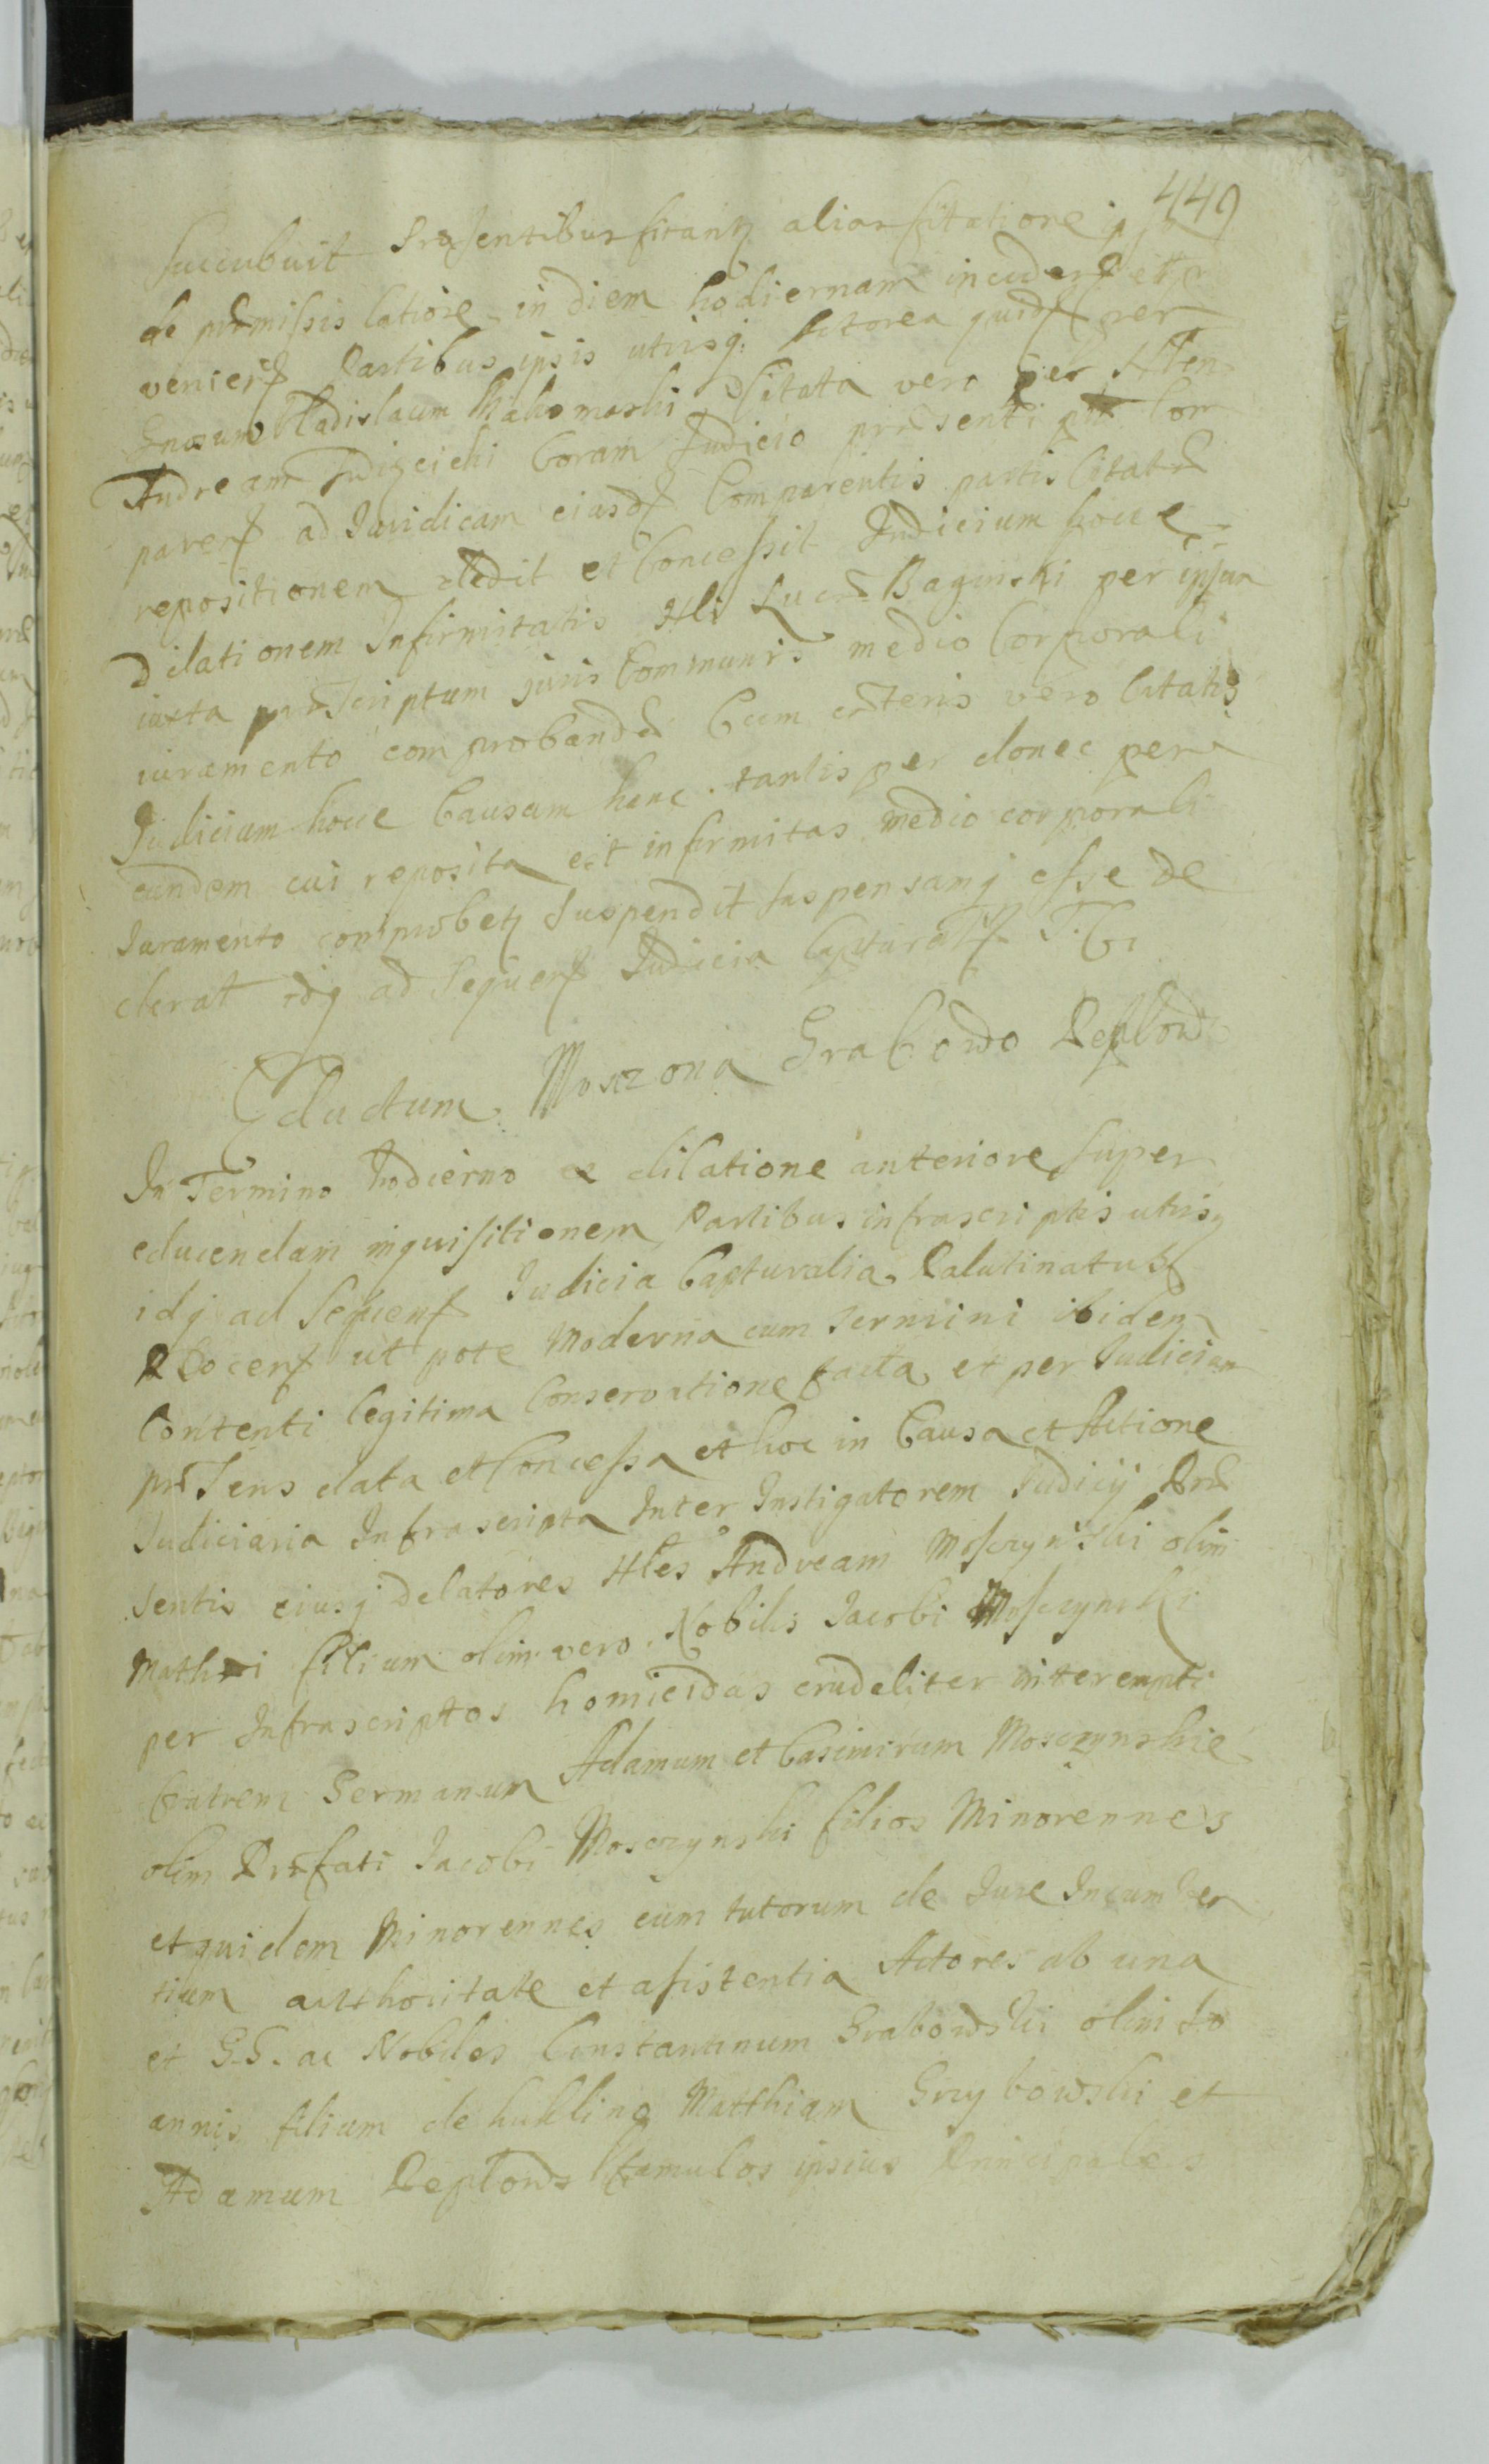 449
succubuit Præsentibus citantq alias citatione
de præmissis latiore in diem hodiernam inciden et
venien Partibus ipsis utrisq Actorea quidem per
Gnosum Vladislaum Kakomaski Citata vero per Nlem
Andream Judzcicki Coram Judicio præsenti Com
paren ad Juridicam eiusd Comparentis partis Citatæ
repositionem dedit et Concessit Judicium hocce
dilationem Infirmitatis Nli Lucæ Baginski per ipsum
iuxta præscriptum juris Communis medio Corporali
iuramento comprobandæ Cum cæteris vero Citatis
Judicium hocce Causam hanc tantisper donec per
eundem cui reposita est infirmitas medio corporali
Juramento comprobetq Suspendit suspensamq esse de
clerat idq ad Sequen Judicia Capturat
Eductum Moszona Grabowo Deplowo
In Termino hodierno ex dilatione anteriore super
educendam inquisitionem Partibus infrascriptis utrisq
idq ad Sequen Judicia Capturalia Palatinatus
Plocen ut pote Moderna cum Termini ibidem
Contenti legitima Conservatione facta et per Judicium
præsens data et Concessa et hoc in Causa et Actione
Judiciaria Infrascripta Inter Instigatorem Judicij Præ
sentis eiusq delatores Nles Andream Mosczynski olim
Mathæi filium olim vero Nobilis Jacobi Mosczynski
per Infrascriptos homicidas crudeliter interempti
fratrem Germanum Adamum et Casimirum Mosczynskie
olim Præfati Jacobi Mosczynski filios Minorennes
et quidem Minorennes cum tutorum de Jure Incumben
tium authoritate et asistentia Actores ab una
et G.G. ac Nobiles Constantinum Grabowski olim Jo
annis filium de kuklino Matthiam Grzybowski et
Adamum Deplows famulos ipsius Principales